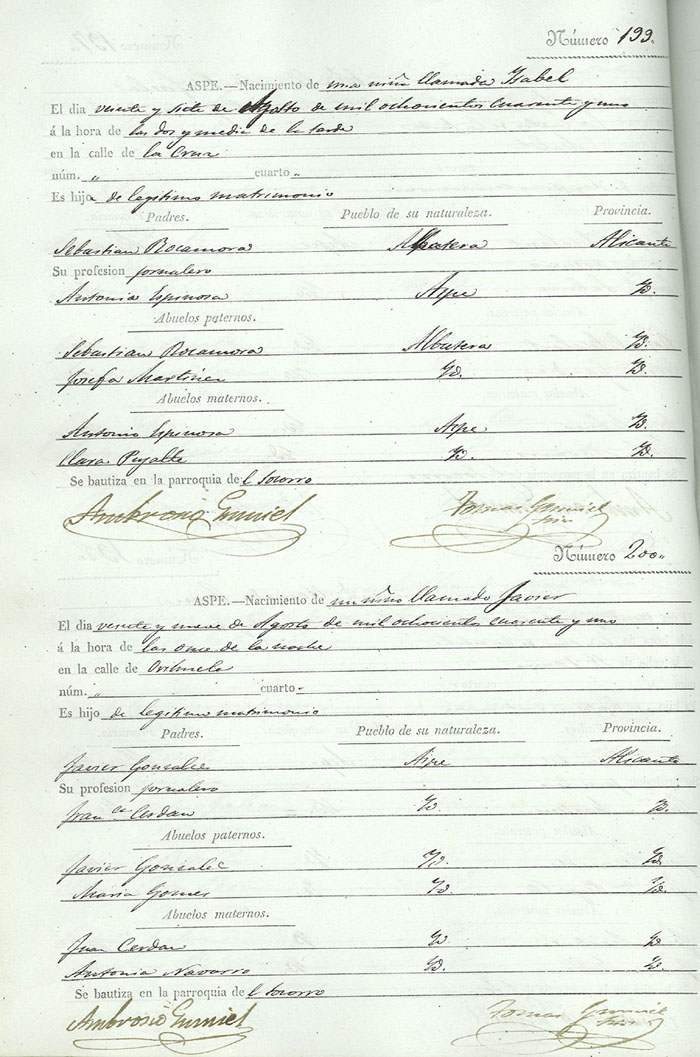 Número 199.
ASPE.—Nacimiento de una niña llamada Ysabel
El dia veinte y siete de Agosto de mil ochocientos cuarenta y uno
á la hora de las dos y media de la tarde
en la calle de la Cruz
núm. " cuarto "
Es hija de legitimo matrimonio
Padres. Pueblo de su naturaleza. Provincia.
Sebastian Rocamora Albatera Alicante
Su profesion jornalero
Antonia Espinosa Aspe Yd.
Abuelos paternos.
Sebastian Rocamora Albatera Yd.
Josefa Martinez Yd. Yd.
Abuelos maternos.
Antonio Espinosa Aspe Yd.
Clara Pujalte Yd. Yd.
Se bautiza en la parroquia del Socorro
Ambrosio Tomas
Número 200.
ASPE.—Nacimiento de un niño llamado Javier
El dia veinte y nueve de Agosto de mil ochocientos cuarenta y uno
á la hora de las once de la noche
en la calle de Orihuela
núm. " cuarto "
Es hijo de legitimo matrimonio
Padres. Pueblo de su naturaleza. Provincia.
Javier Gonzalez Aspe Alicante
Su profesion jornalero
Fran.ca Cerdan Yd. Yd.
Abuelos paternos.
Javier Gonzalez Yd. Yd.
Maria Gomez Yd. Yd.
Abuelos maternos.
Juan Cerdan Yd. Yd.
Antonia Navarro Yd. Yd.
Se bautiza en la parroquia del Socorro
Ambrosio Tomas